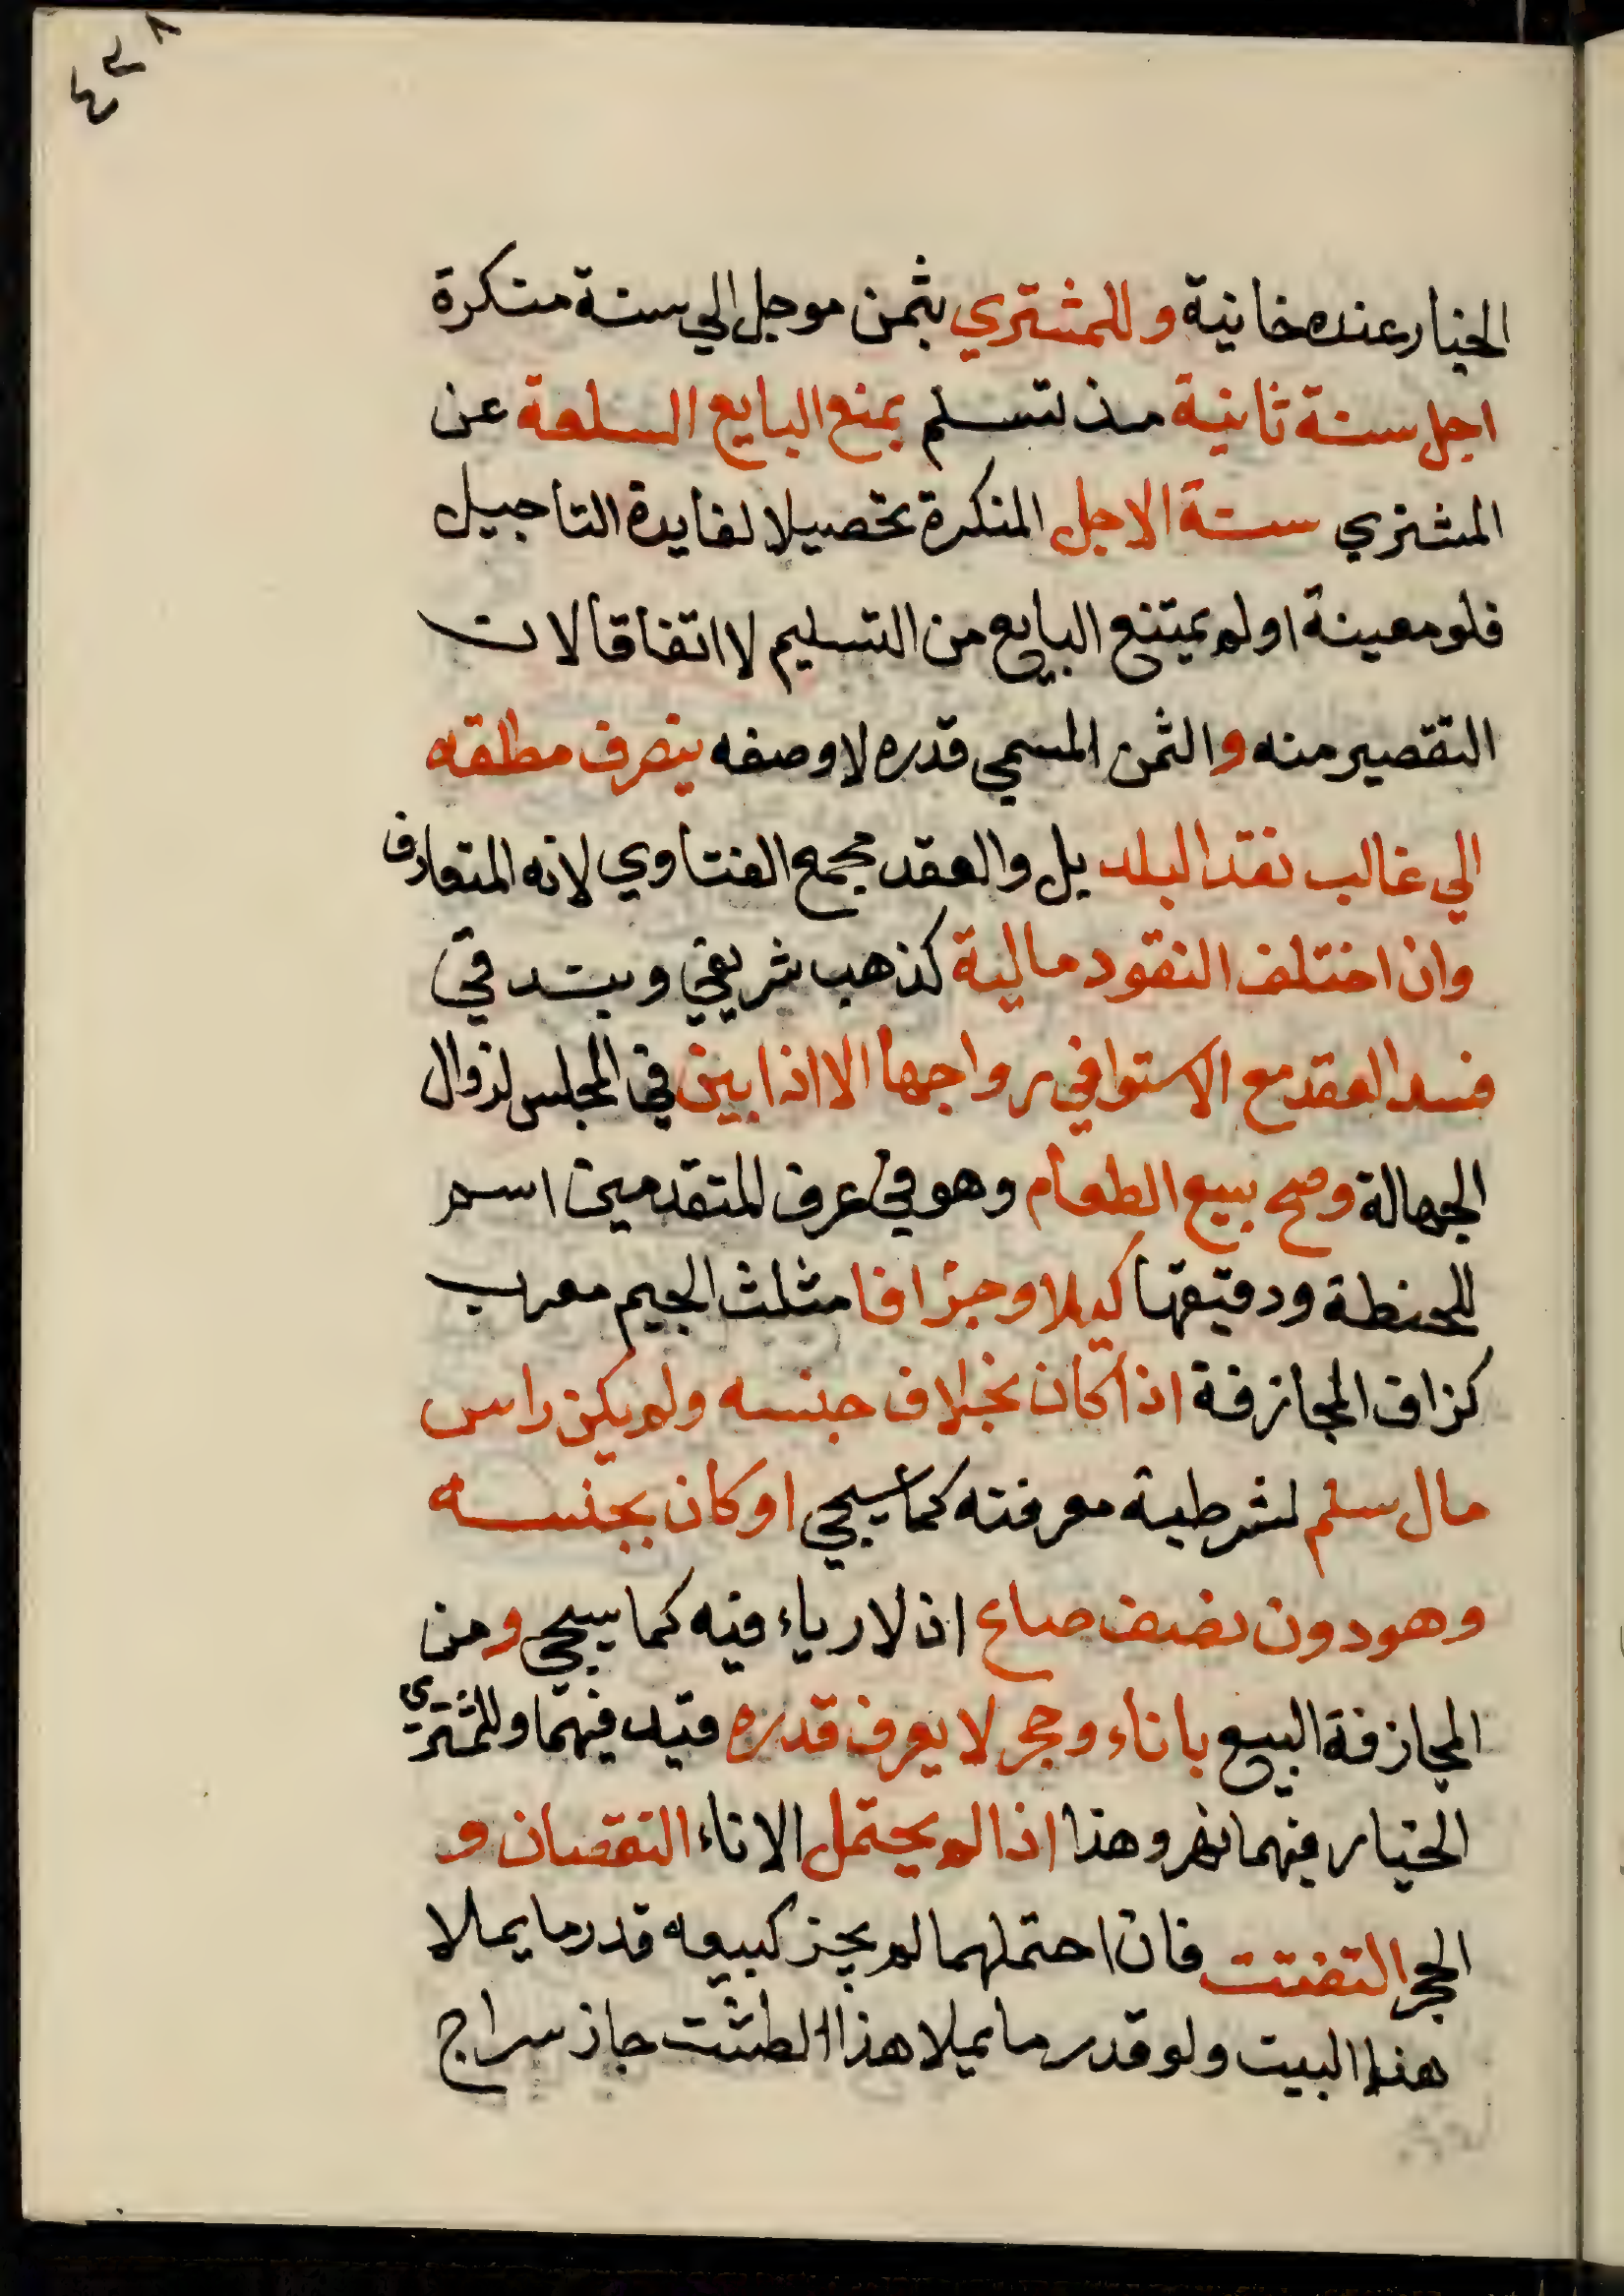 ٤٣٨
الخيار عنده خانية وللمشتري بثمن موجل الي سنة منكرة
اجل سنة ثانية مذ تسلم بمنع البايع السلعة عن
المشتري سنة الاجل المنكرة تحصيلا لفايدة التاجيل
فلو معينة او لم يمتنع البايع من التسليم لا اتفاقا لان
التقصير منه والثمن المسمي قدره لا وصفه ينصرف مطلقه
الي غالب نقد البلد بل والعقد مجمع الفتاوي لانه المتعارف
وان اختلف النقود مالية كذهب شريفي وبندقي
فسد العقد مع الاستوا في رواجها الا اذا بين في المجلس لزوال
الجهالة وصح بيع الطعام وهو في عرف المتقدمين اسم
للحنطة ودقيقها كيلا وجزافا مثلث الجيم معرب
كزاف المجازفة اذا كان بخلاف جنسه ولم يكن راس
مال سلم لشرطية معرفته كما سيجي او كان بجنسه
وهو دون نصف صاع اذ لا رياء فيه كما سيجي ومن
المجازفة البيع باناء وحجر لا يعرف قدره قيد فيهما وللمشتري
الخيار فيهما نهر وهذا اذا لم يحتمل الاناء النقصان و
الحجر التفتت فان احتملهما لم يجز كبيعه قدر ما يملا
هذا البيت ولو قدر ما يملا هذا الطشت جاز سراج